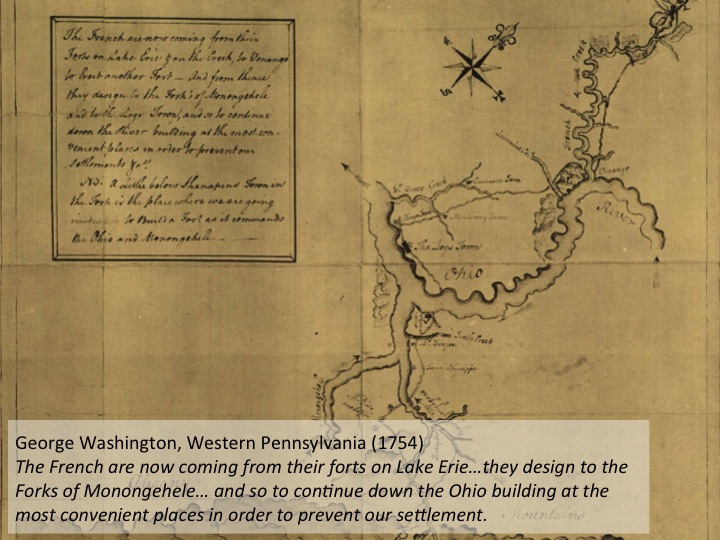 The French are now coming from their
Forts on Lake Erie & on the Creek, to Venango
to Erect another Fort — And from thence
they design to the Fork's of Monongehele
and to the Logs Town, and so to continue
down the River building at the most con-
venient places in order to prevent our
Settlements &c.
NB: A Little below Shanapins Town in
the Fork is the place where we are going
to Build a Fort as it commands
the Ohio and Monongehele
French Creek
Venango
River
The Logs Town
Ohio
Mountains
George Washington, Western Pennsylvania (1754)
The French are now coming from their forts on Lake Erie…they design to the
Forks of Monongehele… and so to continue down the Ohio building at the
most convenient places in order to prevent our settlement.